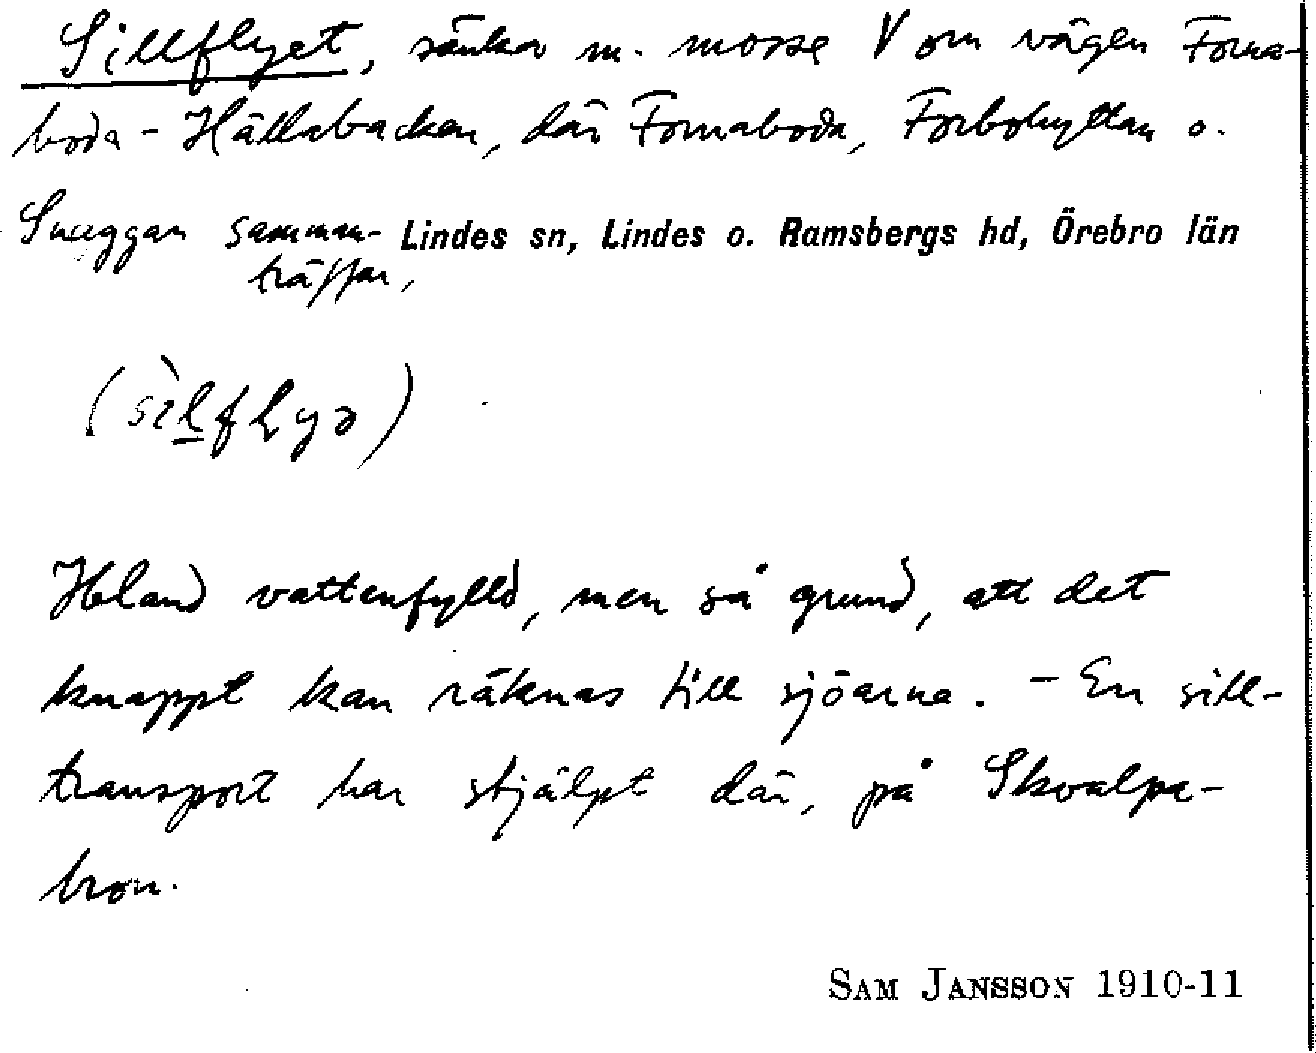 Sillflyet, sänka m. mosse V om vägen Forna-
boda - Hällabacken, där Fornaboda, Forbohyttan o.
Snuggan samman- Lindes sn, Lindes o. Ramsbergs hd, Örebro län
träffar,
(sìlflyə)
Ibland vattenfylld, men så grund, att det
knappt kan räknas till sjöarna. - En sill-
transport har stjälpt där, på Skvalpa-
bron.
SAM JANSSON 1910-11